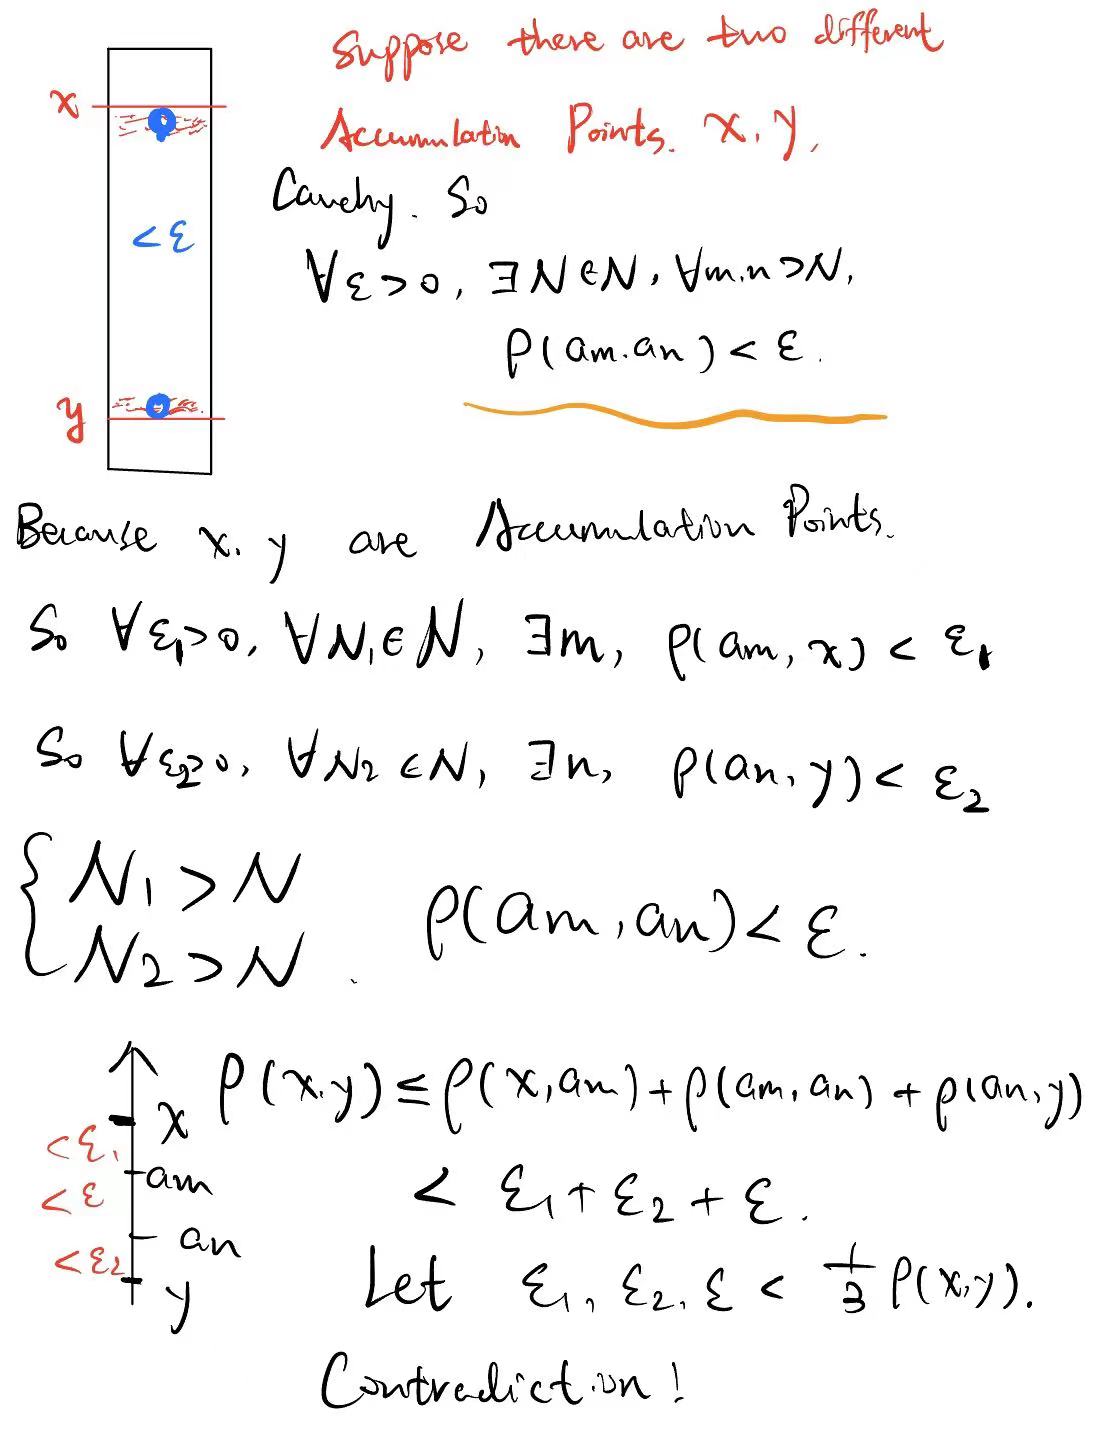 Suppose there are two different
x
Accumulation Points. x, y,
Cauchy. So
<ε
∀ε>0, ∃N∈N, ∀m,n>N,
ρ(am.an)<ε.
y
Because x, y are Accumulation Points.
So ∀ε₁>0, ∀N₁∈N, ∃m, ρ(am, x) < ε₁
So ∀ε₂>0, ∀N₂∈N, ∃n, ρ(an, y) < ε₂
{ N₁>N
N₂>N. ρ(am, an)<ε.
ρ(x,y)≤ρ(x,am)+ρ(am,an)+ρ(an,y)
x
<ε₁
am
<ε
< ε₁+ε₂+ε.
an
<ε₂
y
Let ε₁, ε₂, ε < 1/3 ρ(x,y).
Contradiction!